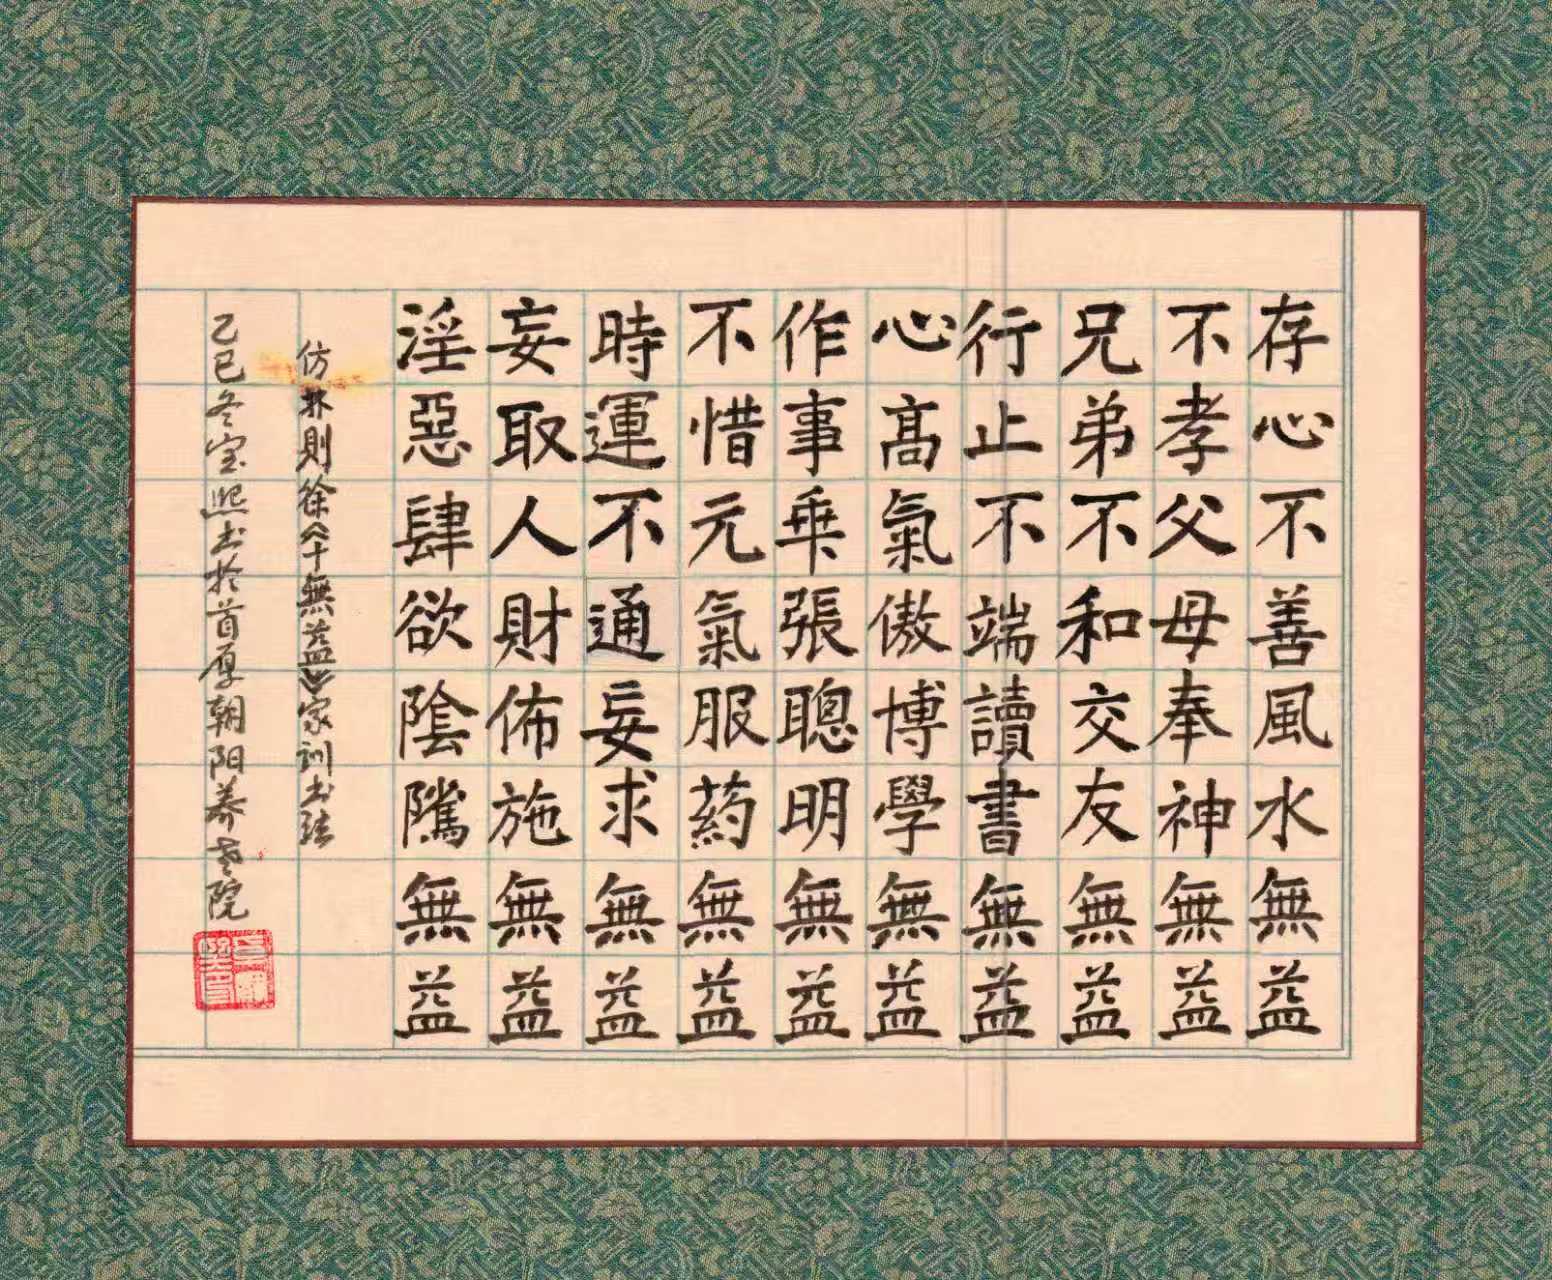 存心不善風水無益
不孝父母奉神無益
兄弟不和交友無益
行止不端讀書無益
心高氣傲博學無益
作事乗張聰明無益
不惜元氣服药無益
時運不通妄求無益
妄取人財佈施無益
淫惡肆欲陰騭無益
仿林則徐《十無益》家训书法
乙巳冬宝熙书於首厚朝阳养老院